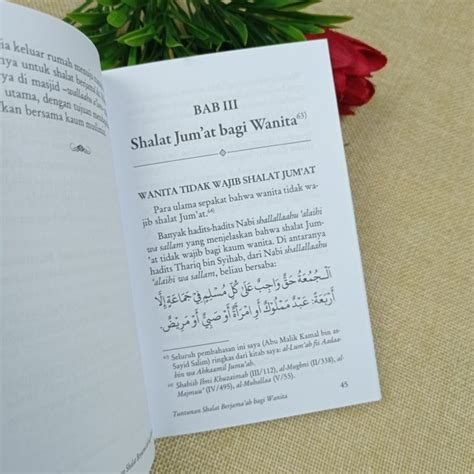 dia keluar rumah menuju
nya untuk shalat berjema
nya di masjid –wallaahu a'lam
utama, dengan tujuan
kan bersama kaum muslimin
BAB III
Shalat Jum'at bagi Wanita⁶³⁾
WANITA TIDAK WAJIB SHALAT JUM'AT
Para ulama sepakat bahwa wanita tidak wa-
jib shalat Jum'at.⁶⁴⁾
Banyak hadits-hadits Nabi shallallaahu 'alaihi
wa sallam yang menjelaskan bahwa shalat Jum-
'at tidak wajib bagi kaum wanita. Di antaranya
hadits Thariq bin Syihab, dari Nabi shallallaahu
'alaihi wa sallam, beliau bersaba:
اَلْجُمُعَةُ حَقٌّ وَاجِبٌ عَلَى كُلِّ مُسْلِمٍ فِيْ جَمَاعَةٍ إِلَّا
أَرْبَعَةً: عَبْدٌ مَمْلُوْكٌ أَوِ امْرَأَةٌ أَوْ صَبِيٌّ أَوْ مَرِيْضٌ.
⁶³⁾ Seluruh pembahasan ini saya (Abu Malik Kamal bin as-
Sayid Salim) ringkas dari kitab saya: al-Lum'ah fii Aadaa-
bin wa Ahkaamil Jumu'ah.
⁶⁴⁾ Shahiih Ibni Khuzaimah (III/112), al-Mughni (II/338), al-
Majmuu' (IV/495), al-Muhallaa (V/55).
45
Tuntunan Shalat Berjama'ah bagi Wanita